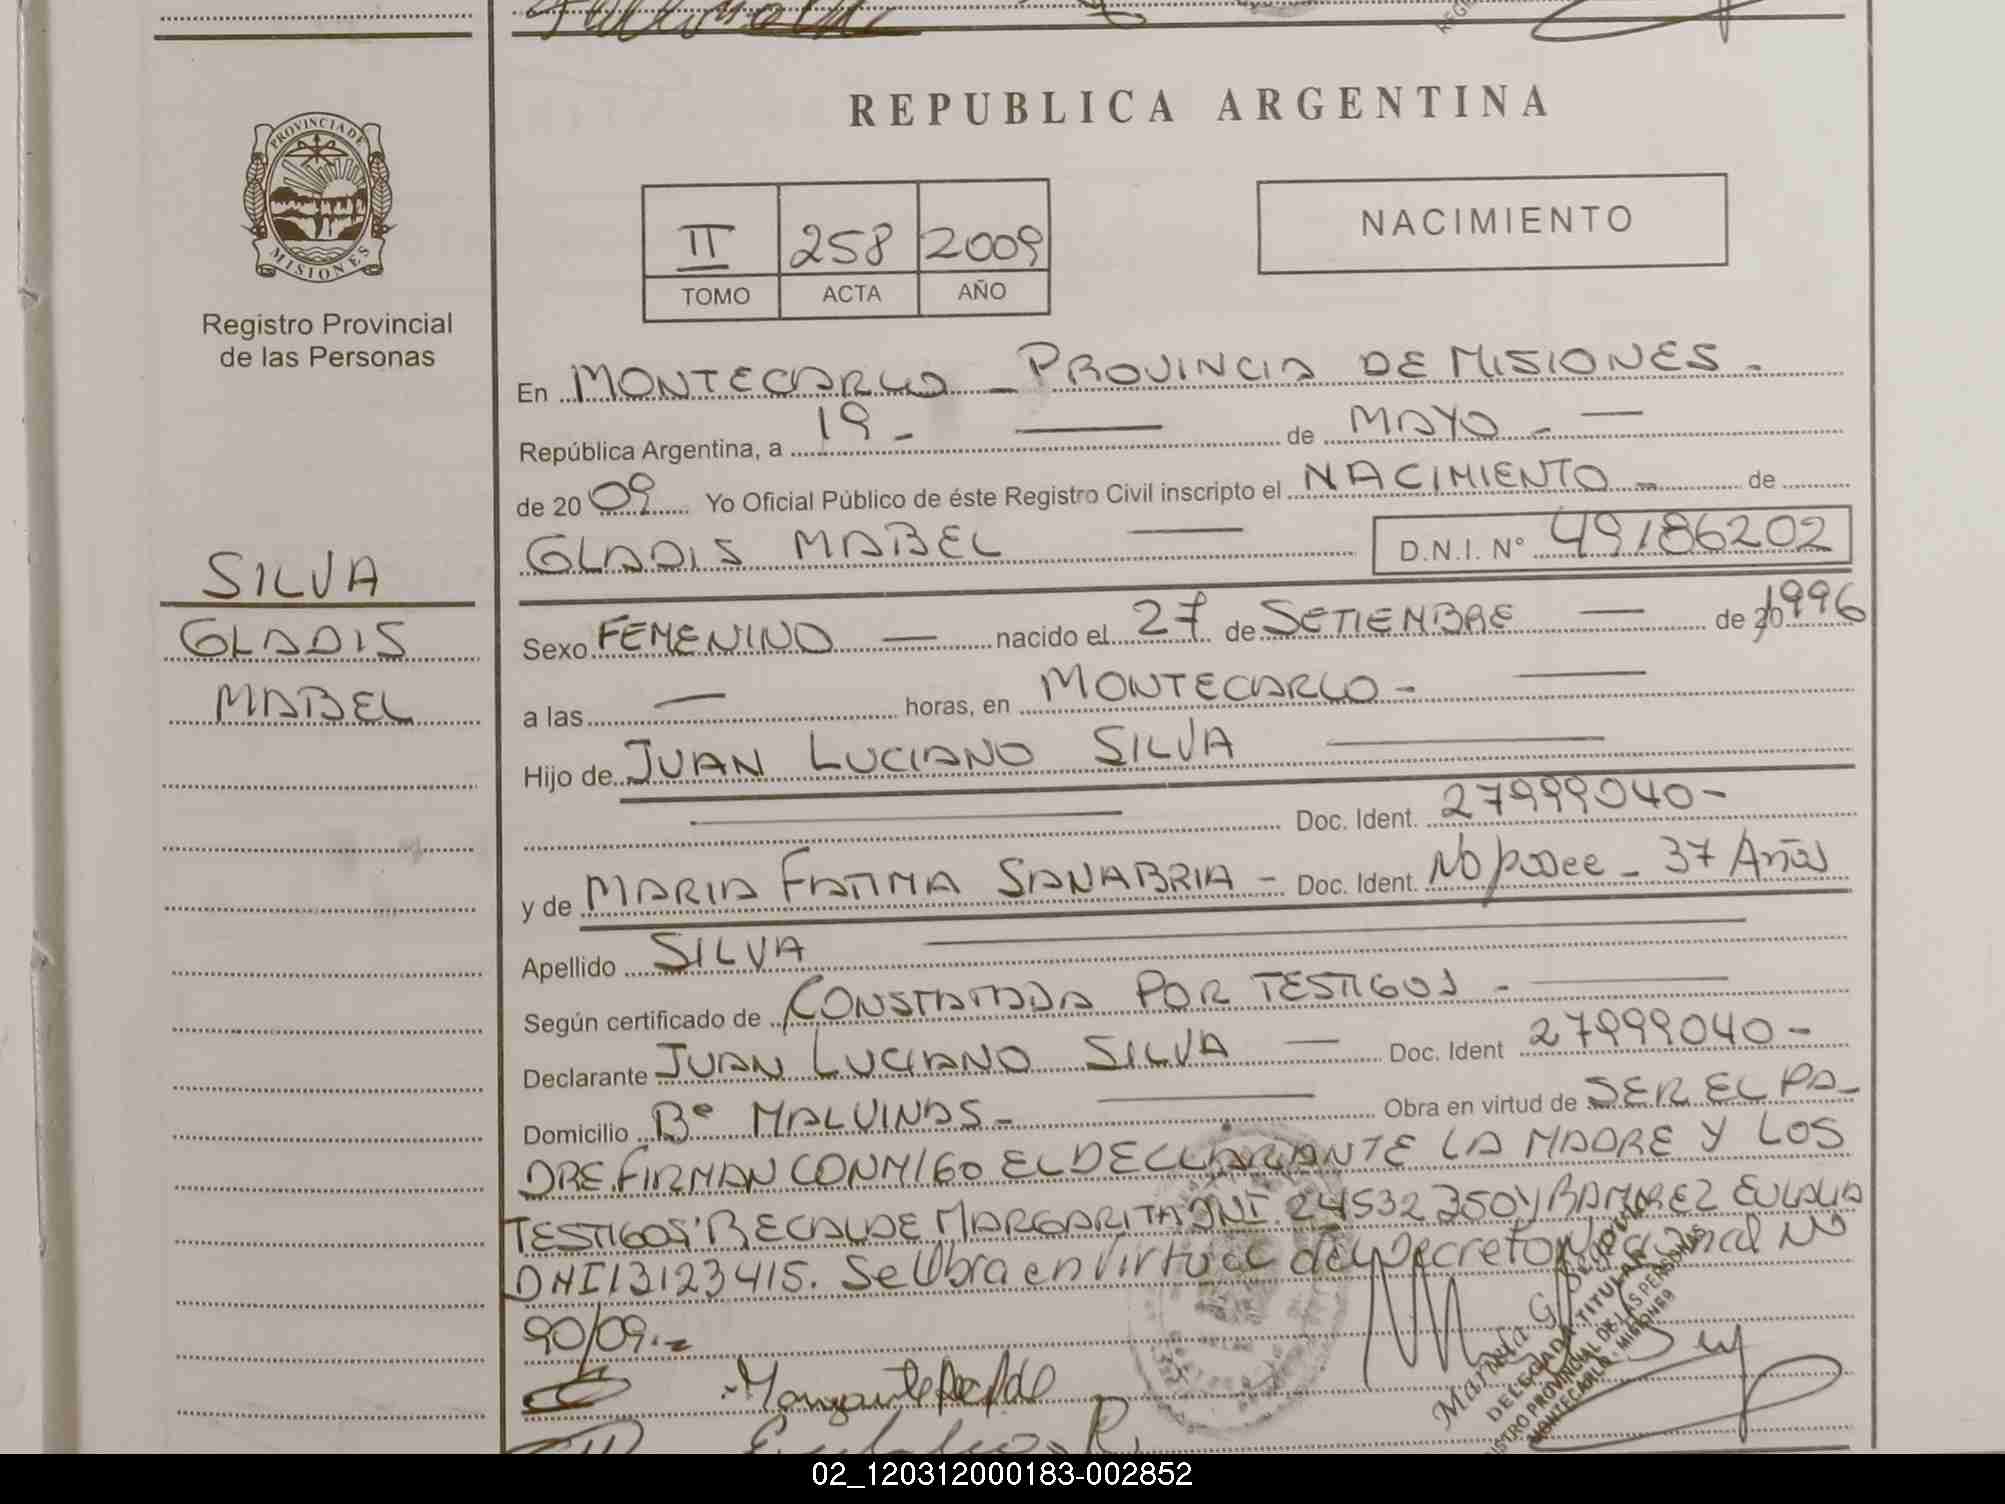 REPUBLICA ARGENTINA
PROVINCIA DE
MISIONES
Registro Provincial
de las Personas
II 258 2009
TOMO ACTA AÑO
NACIMIENTO
En MONTECARLO - PROVINCIA DE MISIONES -
República Argentina, a 19 - — de MAYO - —
de 2009 Yo Oficial Público de éste Registro Civil inscripto el NACIMIENTO - de
GLADIS MABEL — D.N.I. Nº 49186202
SILVA
GLADIS
MABEL
Sexo FEMENINO — nacido el 27 de SETIEMBRE — de 20 1996
a las — horas, en MONTECARLO - —
Hijo de JUAN LUCIANO SILVA —
— Doc. Ident. 27999040 -
y de MARIA FATIMA SANABRIA - Doc. Ident. No posee - 37 Años
Apellido SILVA —
Según certificado de CONSTATADA POR TESTIGOS - —
Declarante JUAN LUCIANO SILVA — Doc. Ident 27999040 -
Domicilio Bº MALVINAS - — Obra en virtud de SER EL PA-
DRE. FIRMAN CONMIGO EL DECLARANTE LA MADRE Y LOS
TESTIGOS: RECALDE MARGARITA DNI. 24532350 Y RAMIREZ EULALIA
DNI 13123415. Se Obra en Virtud del Decreto Nacional Nº
90/09.-
DELEGADA TITULAR
REGISTRO PROVINCIAL DE LAS PERSONAS
MONTECARLO - MISIONES
02_120312000183-002852